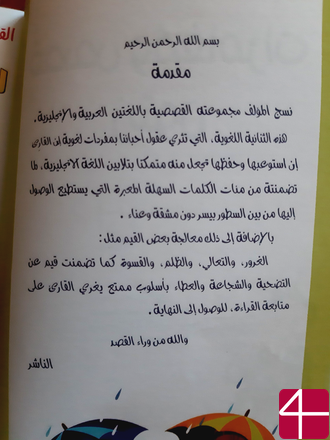 بسم الله الرحمن الرحيم
مقدمة
نسج المؤلف مجموعته القصصية باللغتين العربية والانجليزية.
هذه الثنائية اللغوية، التي تثري عقول أحبابنا بمفردات لغوية لأن القارئ
إن استوعبها وحفظها تجعل منه متمكنا بتلابيب اللغة الانجليزية، لما
تضمنته من مئات الكلمات السهلة المعبرة التي يستطيع الوصول
إليها من بين السطور بيسر دون مشقة وعناء .
بالإضافة إلى ذلك معالجة بعض القيم مثل:
الغرور، والتعالي، والظلم، والقسوة كما تضمنت قيم عن
التضحية والشجاعة والعطاء بأسلوب ممتع يغري القارئ على
متابعة القراءة، للوصول إلى النهاية.
والله من وراء القصد
الناشر